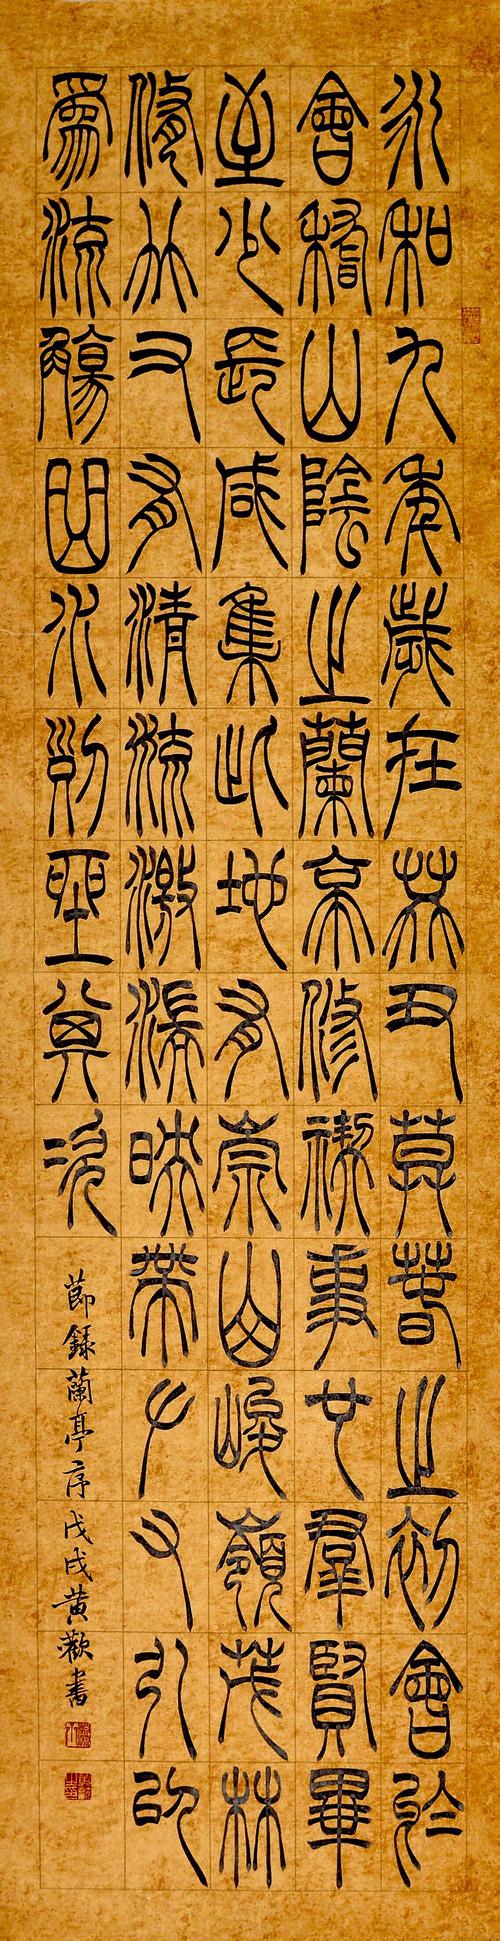 永和九年歲在癸丑莫春之初會於
會稽山陰之蘭亭修禊事也羣賢畢
至少長咸集此地有崇山峻嶺茂林
修竹又有清流激湍映帶左右引以
爲流觴曲水列坐其次
節錄蘭亭序戊戌黃歡書